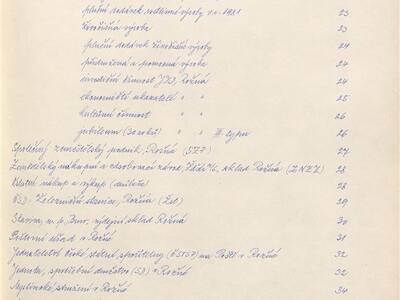 plnění dodávek rostlinné výroby v r. 1981 23
živočišná výroba 23
plnění dodávek živočišné výroby 24
přidružená a pomocná výroba 24
sociální činnost JZD, Rožná 24
ekonomičtí ukazatelé " " 25
kulturní činnost " " 26
jubileum (30 roků) " II. typu 26
Společný zemědělský podnik, Rožná (SZP) 27
Zemědělský nákupní a zásobovací závod, Žďár n/S, sklad Rožná (ZNZZ) 28
Ostatní nákup a výkup 28
ČSD - Železniční stanice, Rožná (žst) 29
Staviva, n. p., Brno, výdejní sklad Rožná 30
Poštovní úřad v Rožné 31
Jednatelství české státní spořitelny (ČSTSP) na Poště v Rožné 32
Jednota, spotřební družstvo (SD) v Rožné 32
v Rožné 34